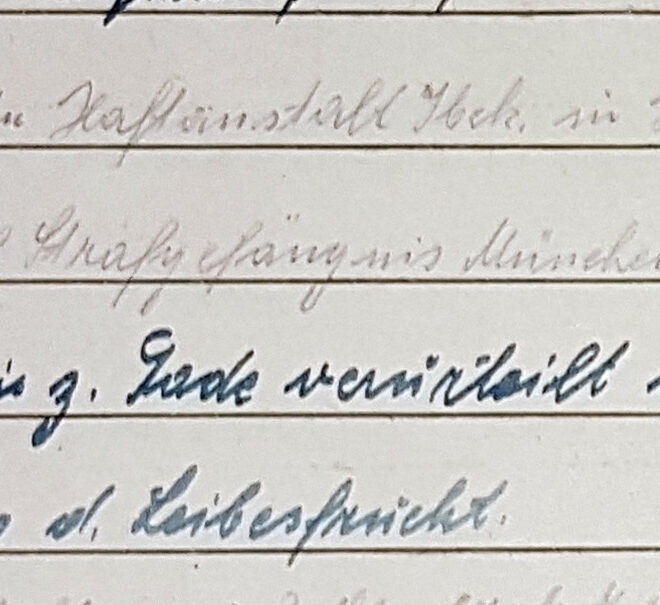 Haftanstalt Ibck. in
Strafgefängnis München
z. Tode verurteilt
d. Leibesfrucht.